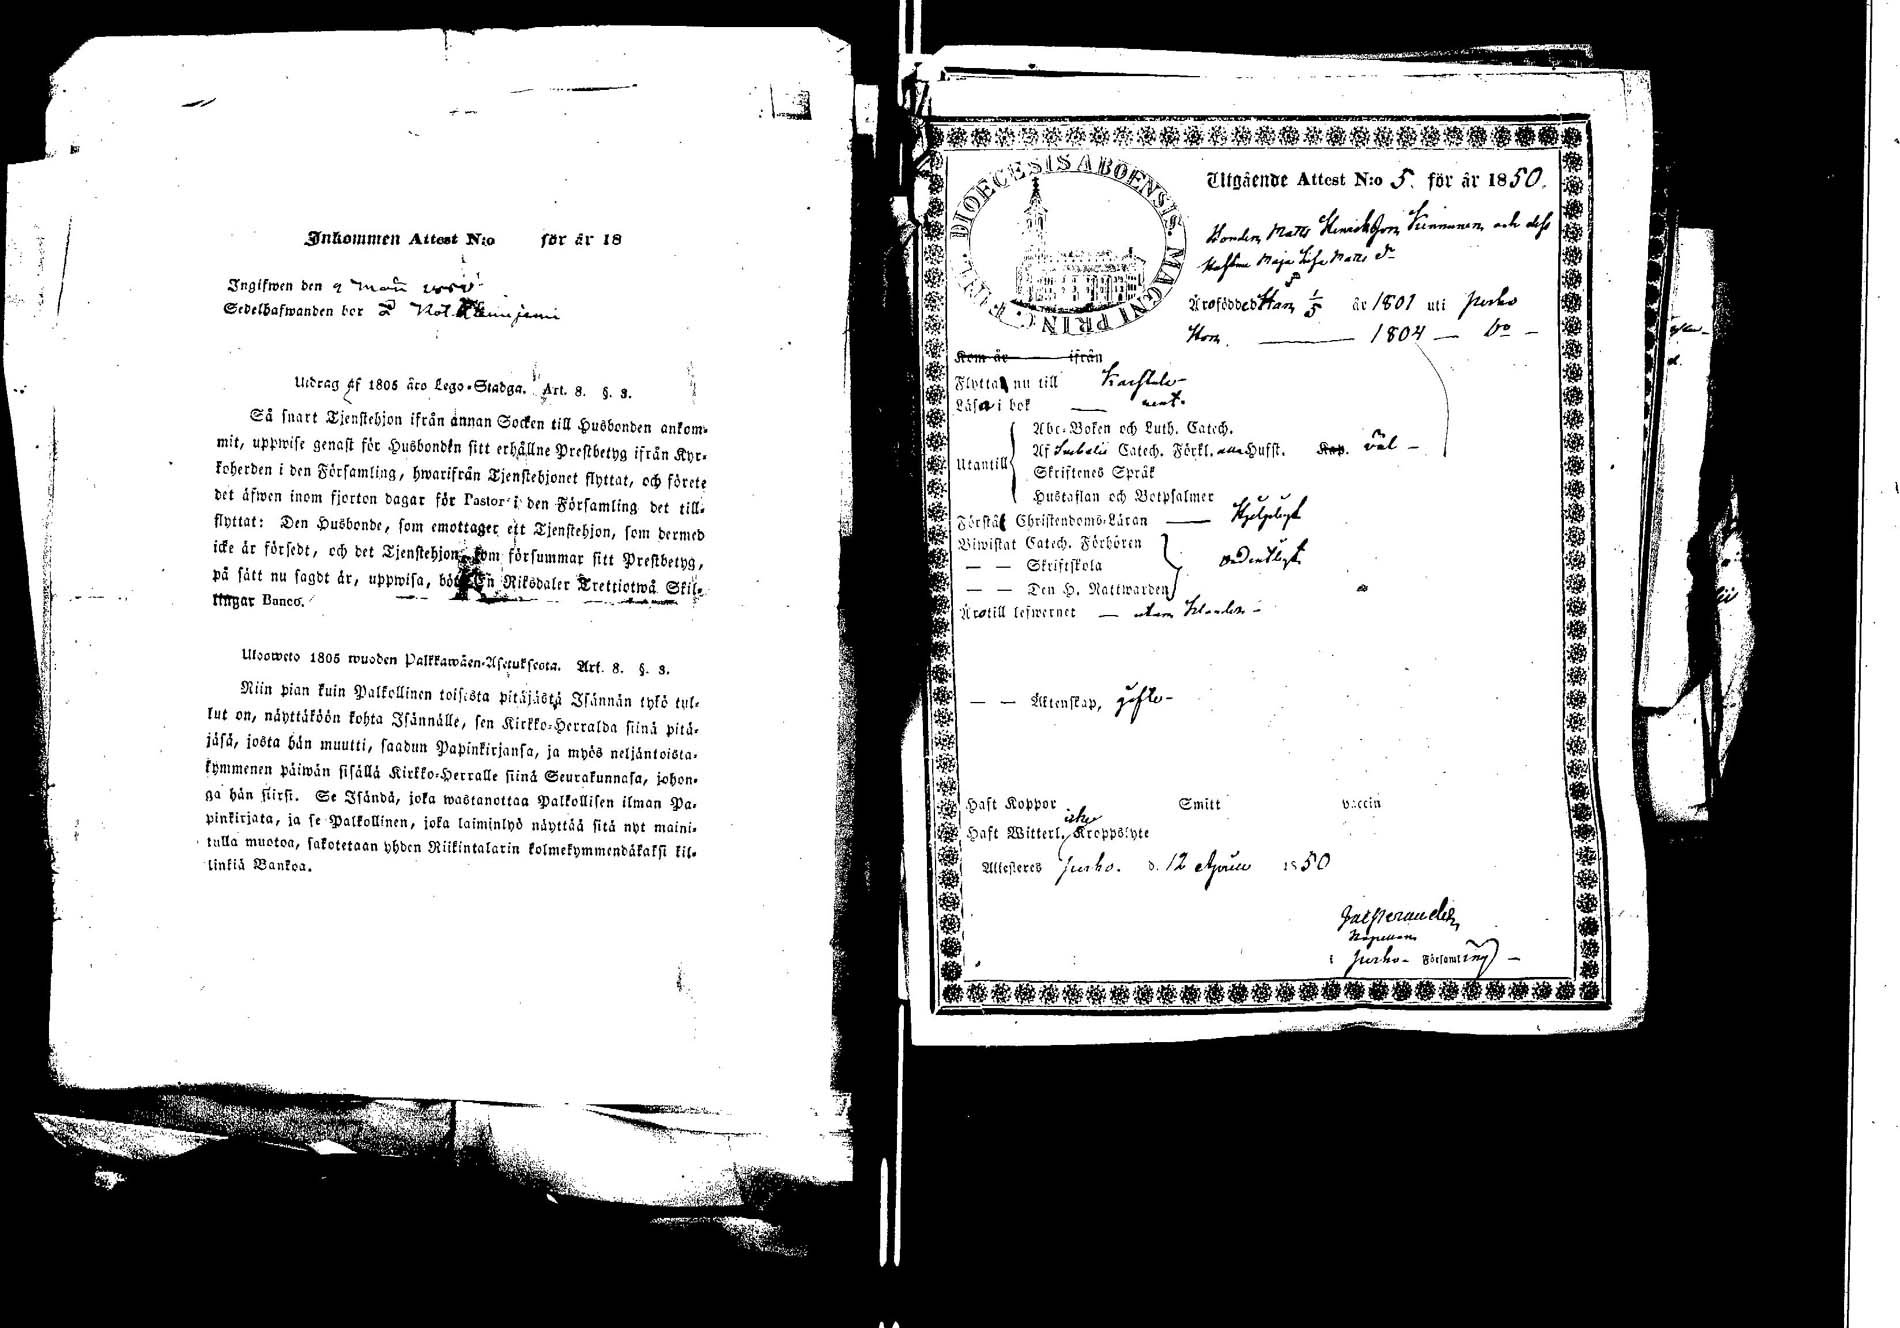 Inkommen Attest N:o för år 18
Ingifwen den 9 Maji
Sedelhafwanden bor
Utdrag af 1805 års Lego-Stadga. Art. 8. §. 3.
Så snart Tjenstehjon ifrån annan Socken till Husbonden ankom-
mit, uppwise genast för Husbonden sitt erhållne Prestbetyg ifrån Kyr-
koherden i den Församling, hwarifrån Tjenstehjonet flyttat, och förete
det äfwen inom fjorton dagar för Pastor i den Församling det till-
flyttat: Den Husbonde, som emottager ett Tjenstehjon, som dermed
icke är försedt, och det Tjenstehjon, som försummar sitt Prestbetyg,
på sätt nu sagdt är, uppwisa, böte En Riksdaler Trettiotwå Skil-
lingar Banco.
Ulosweto 1805 wuoden Palkkawäen-Asetuksesta. Art. 8. §. 3.
Niin pian kuin Palkollinen toisesta pitäjästä Isännän tykö tul-
lut on, näyttäköön kohta Isännälle, sen Kirkko-Herralda siinä pitä-
jäsä, josta hän muutti, saadun Papinkirjansa, ja myös neljäntoista-
kymmenen päiwän sisällä Kirkko-Herralle siinä Seurakunnasa, johon-
ga hän siirsi. Se Isändä, joka wastanottaa Palkollisen ilman Pa-
pinkirjata, ja se Palkollinen, joka laiminlyö näyttää sitä nyt maini-
tulla muotoa, sakotetaan yhden Riikintalarin kolmekymmendäkaksi kil-
linkiä Bankoa.
DIOECESIS ABOENSIS. MAGNI PRINC. FINL.
Utgående Attest N:o 5. för år 1850.
Bonden Matts Henricsson Kinnunen och dess
Hustru Maja Lisa Matts dr
Äro födde Han 1/5 år 1801 uti Jurho
Hon — 1804 — Do —
Kom år ifrån
Flytta nu till Karstula
Läsa i bok — nent.
Utantill
Abc-Boken och Luth. Catech.
Af Svebelii Catech. Förkl. Hufst. Kap. väl —
Skriftenes Språk
Hustaflan och Botpsalmer
Förstå Christendoms-Läran — Hjelpligt
Biwistat Catech. Förhören
— — Skriftskola ordentligt
— — Den H. Nattwarden
Äro till lefwernet — utan klander —
— — Äktenskap, gifte —
Haft Koppor Smitt vaccin
icke
Haft Witterl. Kroppslyte
Attesteres Jurho. d. 12 Aprill 1850
Kapellan
i Jurho — Församling —